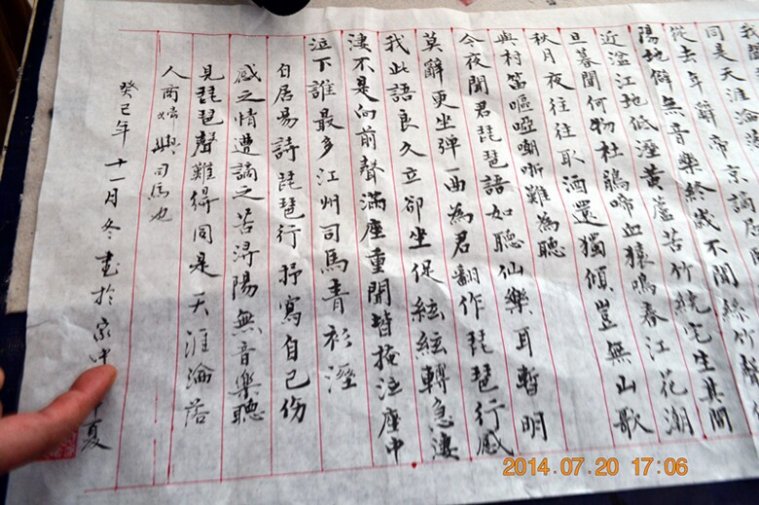 我
同是天涯淪
從去年辭帝京謫居
陽地僻無音樂終歲不聞絲竹聲
近湓江地低溼黃蘆苦竹繞宅生其間
旦暮聞何物杜鵑啼血猿鳴春江花潮
秋月夜往往取酒還獨傾豈無山歌
與村笛嘔啞嘲哳難為聽
今夜聞君琵琶語如聽仙樂耳暫明
莫辭更坐彈一曲為君翻作琵琶行感
我此語良久立卻坐促絃絃轉急淒
淒不是向前聲滿座重聞皆掩泣座中
泣下誰最多江州司馬青衫溼
白居易詩琵琶行抒寫自己傷
感之情遭謫之苦潯陽無音樂聽
見琵琶聲難得同是天涯淪落
人商婦與司馬也
癸巳年十一月冬書於家中 夏
2014.07.20 17:06